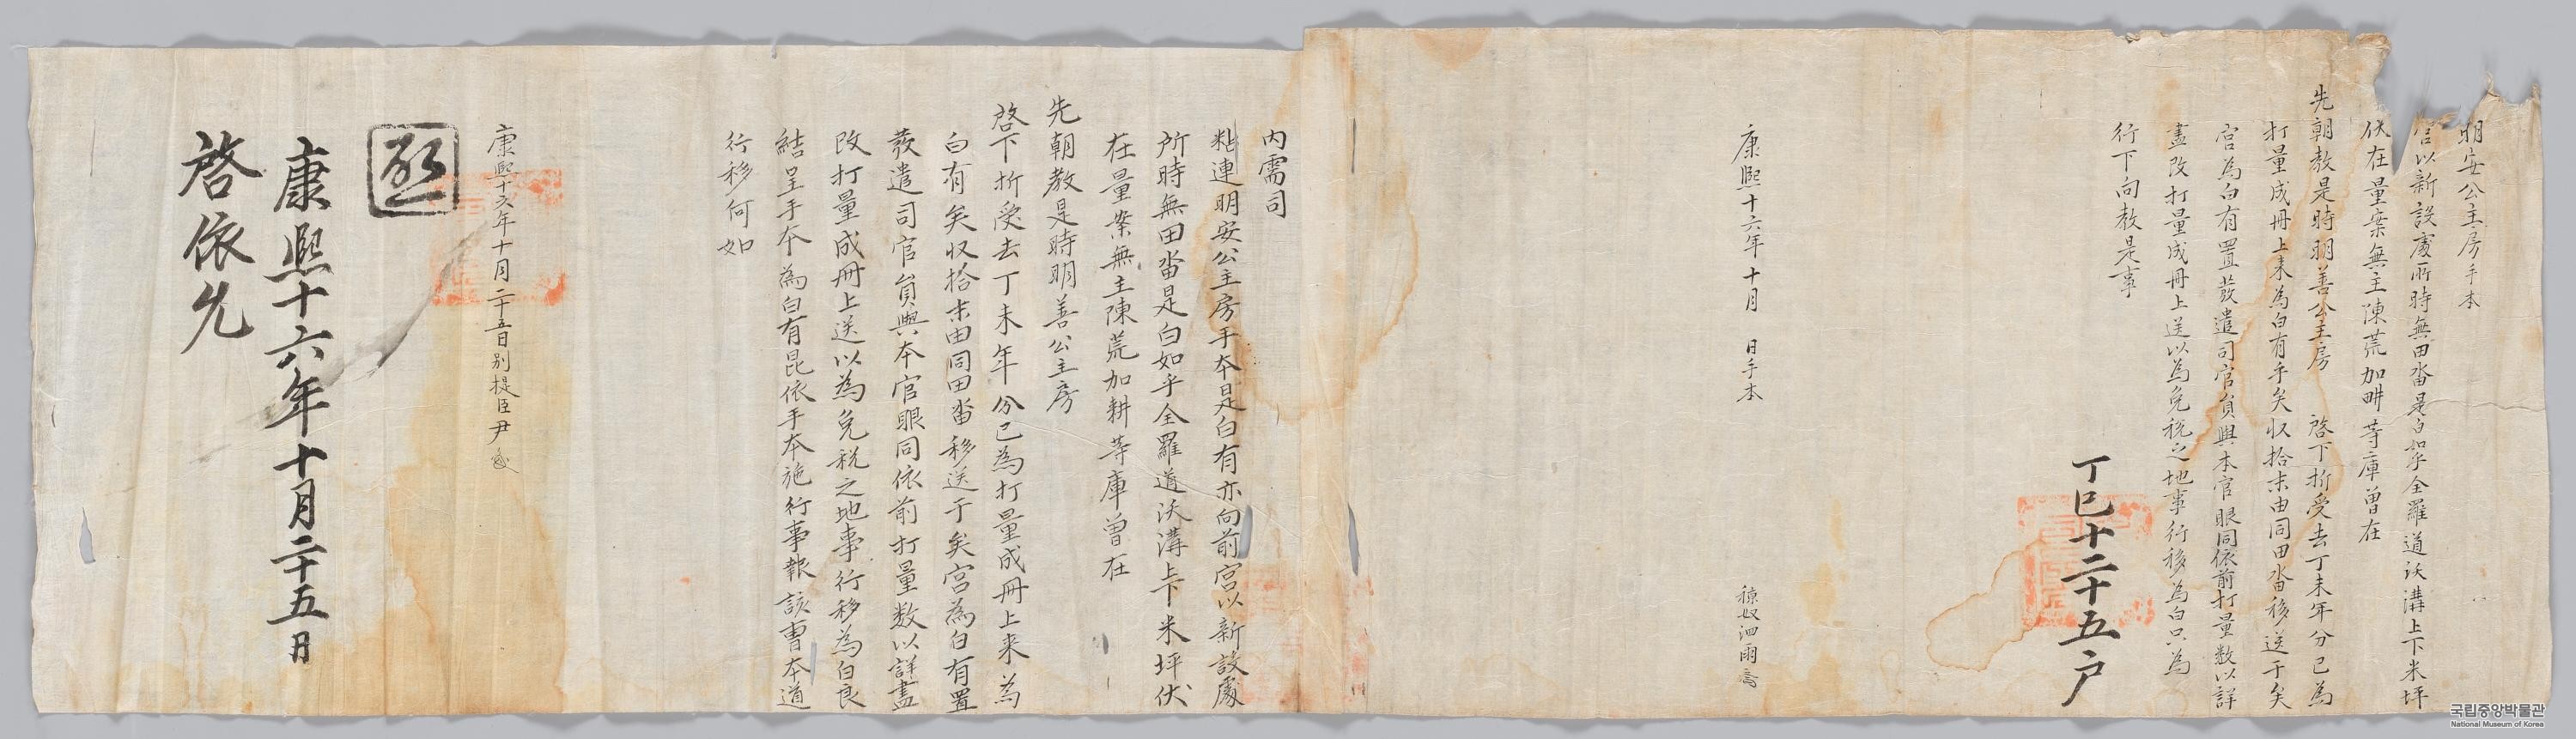 明安公主房手本
宮以新設處所時無田畓是白如乎全羅道沃溝上下米坪
伏在量案無主陳荒加畊等庫曾在
先朝教是時明善公主房 啓下折受去丁未年分已為
打量成冊上来為白有乎矣収拾末由同田畓移送于矣
宮為白有置發遣司官負與本官眼同依前打量數以詳
盡改打量成冊上送以為免稅之地事行移為白只為
行下向教是事
丁巳十二十五戶
康熙十六年十月 日手本
稤奴
内需司
粘連明安公主房手本是白有亦向前宮以新設處
所時無田畓是白如乎全羅道沃溝上下米坪伏
在量案無主陳荒加耕等庫曾在
先朝教是時明善公主房
啓下折受去丁未年分已為打量成冊上来為
白有矣収拾末由同田畓移送于矣宮為白有置
發遣司官負與本官眼同依前打量數以詳盡
改打量成冊上送以為免稅之地事行移為白良
結呈手本為白有昆依手本施行事報該曹本道
行移何如
康熙十六年十月二十五日別提臣尹
啓
康熙十六年十月二十五日
啓依允
국립중앙박물관
National Museum of Korea